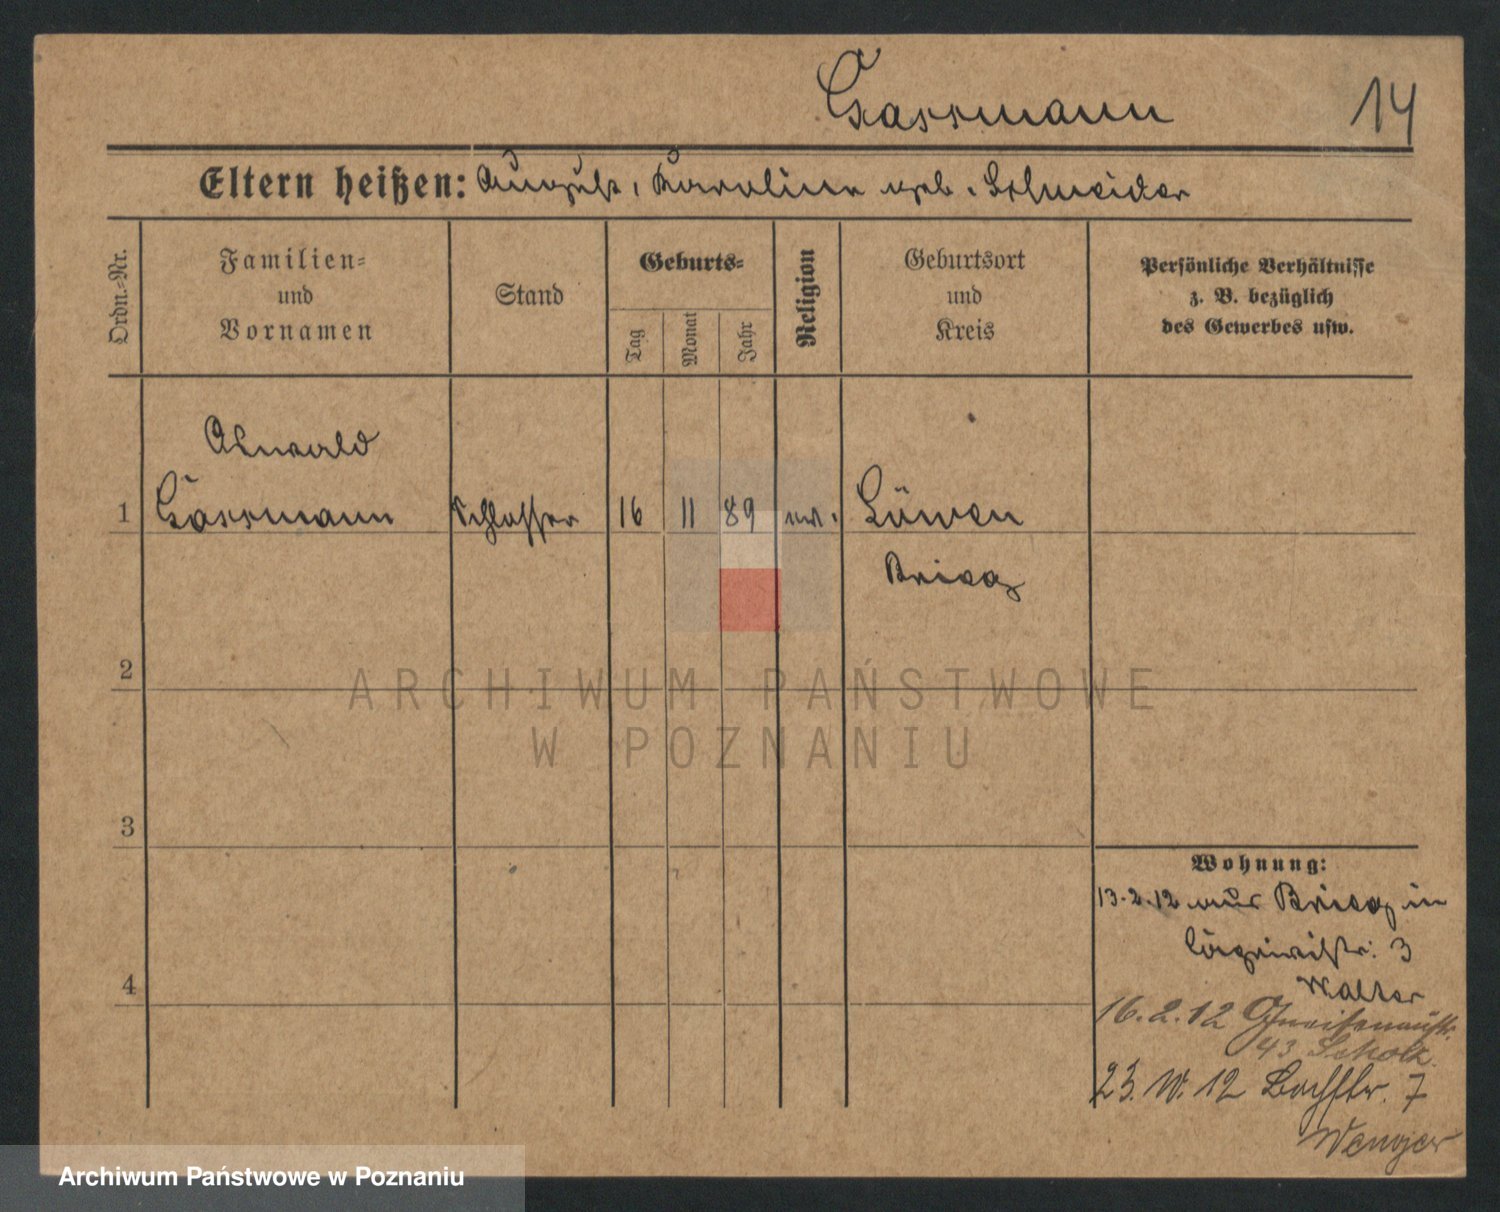 Gassmann 14
Eltern heißen: August, Karoline geb. Schneider
Ordn.-Nr.
Familien-
und
Vornamen
Stand
Geburts-
Tag
Monat
Jahr
Religion
Geburtsort
und
Kreis
Persönliche Verhältnisse
z. B. bezüglich
des Gewerbes usw.
1 Gassmann Schlosser 16 11 89 ev. Löwen
Brieg
2
ARCHIWUM PAŃSTWOWE
W POZNANIU
3
4
Wohnung:
13.2.12 aus Brieg in
3
Walter
16.2.12 Gneisenaustr.
43 Scholz
23. IV. 12 Bachstr. 7
Archiwum Państwowe w Poznaniu